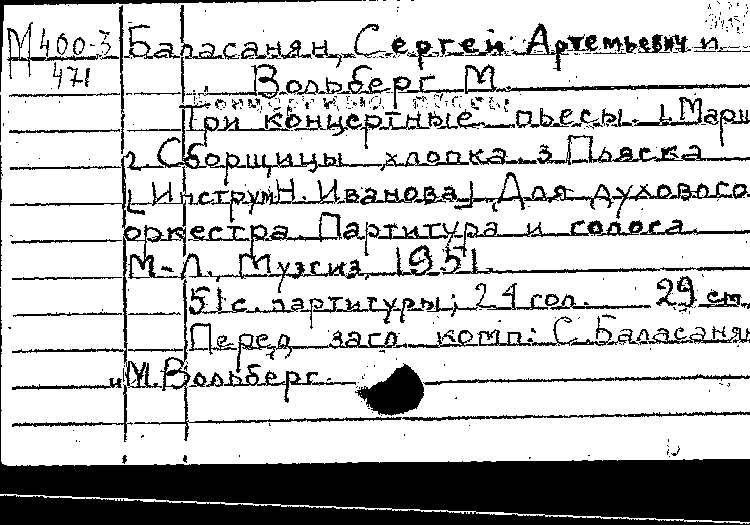 М400-3
471
Баласанян, Сергей Артемьевич и
Вольберг М.
Концертные пьесы
Три концертные пьесы. 1. Марш
2. Сборщицы хлопка. 3 Пляска
[Инструм Н. Иванова] Для духового
оркестра. Партитура и голоса.
М-Л., Музгиз, 1951.
51с. партитуры; 24 гол. 29 см.
Перед загл. комп: С. Баласанян
и М. Вольберг.